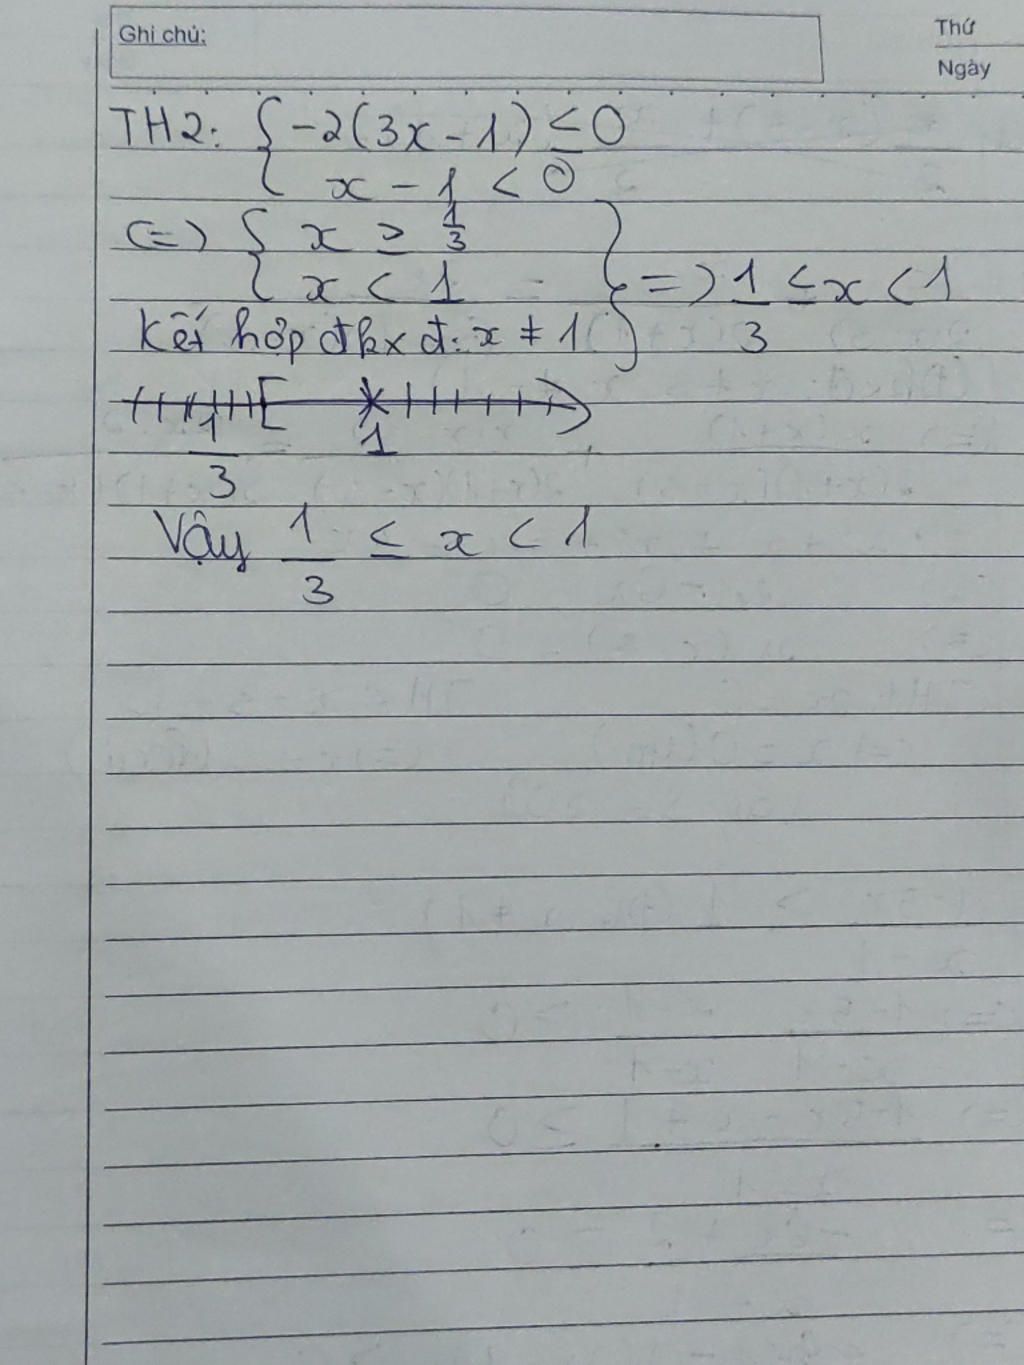 Ghi chú:
Thứ
Ngày
TH2: { -2(3x - 1) ≤ 0
x - 1 < 0
(=) { x ≥ 1/3
x < 1 } =) 1/3 ≤ x < 1
Kết hợp đkxđ: x ≠ 1
1/3 1
Vậy 1/3 ≤ x < 1